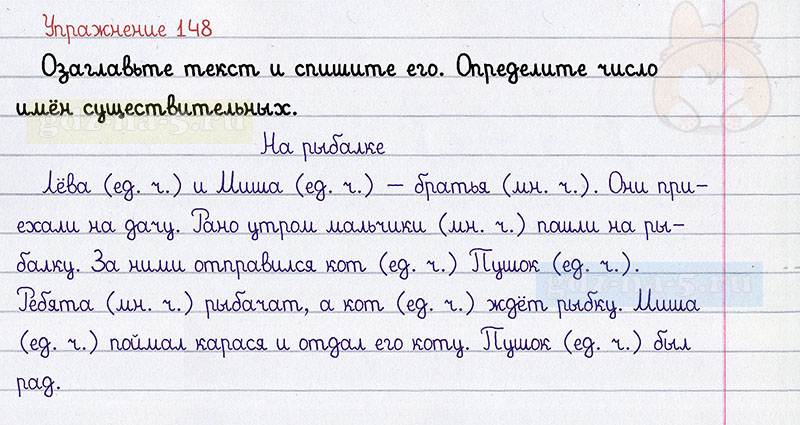 Упражнение 148
Озаглавьте текст и спишите его. Определите число
имён существительных.
На рыбалке
Лёва (ед. ч.) и Миша (ед. ч.) – братья (мн. ч.). Они при-
ехали на дачу. Рано утром мальчики (мн. ч.) пошли на ры-
балку. За ними отправился кот (ед. ч.) Пушок (ед. ч.).
Ребята (мн. ч.) рыбачат, а кот (ед. ч.) ждёт рыбку. Миша
(ед. ч.) поймал карася и отдал его коту. Пушок (ед. ч.) был
рад.